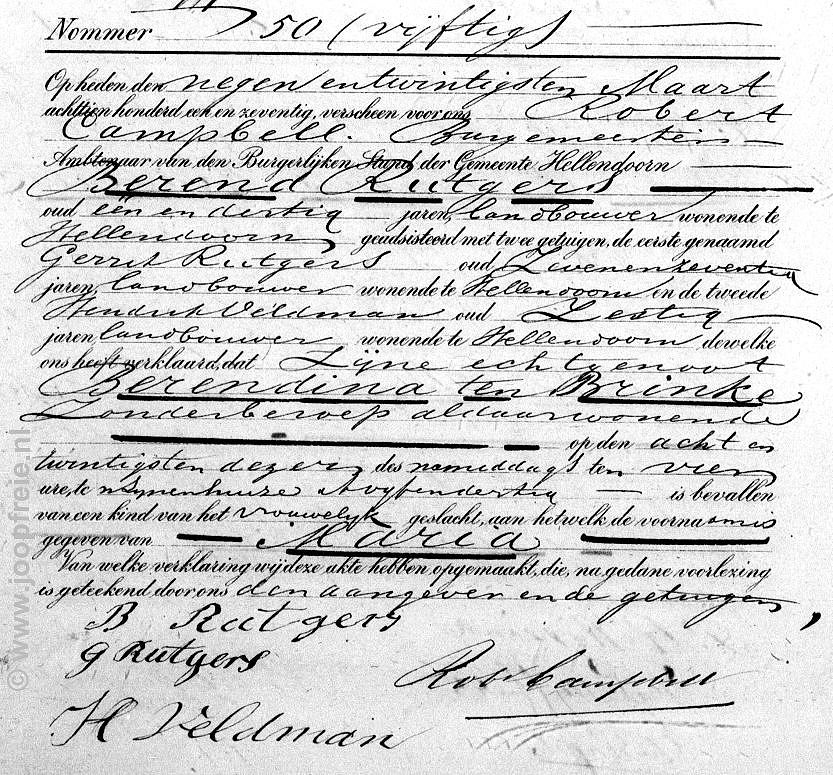 Nommer 50 (vijftig)
Op heden den negen en twintigsten Maart
achttien honderd een en zeventig, verscheen voor ons Robert
Campbell. Burgemeester
Ambtenaar van den Burgerlijken Stand der Gemeente Hellendoorn
Berend Rutgers
oud een en dertig jaren, landbouwer wonende te
Hellendoorn geadsisteerd met twee getuigen, de eerste genaamd
Gerrit Rutgers oud Twee en zeventig
jaren, landbouwer wonende te Hellendoorn en de tweede
Hendrik Veldman oud Zestig
jaren, landbouwer wonende te Hellendoorn dewelke
ons heeft verklaard, dat Zijne echtgenoot
Berendina ten Brinke
Zonder beroep aldaar wonende
op den acht en
twintigsten dezer des namiddags ten vier
ure, te zijnen huize is bevallen
van een kind van het vrouwelijk geslacht, aan hetwelk de voornaam is
gegeven van Maria
Van welke verklaring wij deze akte hebben opgemaakt, die, na gedane voorlezing
is geteekend door ons den aangever en de getuigen,
B Rutgers
G Rutgers
Rob Campbell
H Veldman
© www.joopfreie.nl